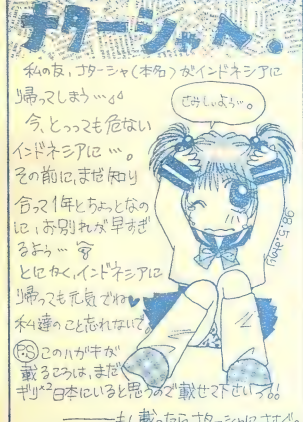 ナターシャへ。
私の友、ナターシャ(本名)がインドネシアに
帰ってしまう…。
今、とっっても危ない
インドネシアに…。
その前に、まだ知り
合って1年とちょっとなの
に、お別れが早すぎ
るよう…
とにかく、インドネシアに
帰っても元気でね♥
私達のこと忘れないで。
P.S このハガキが
載るころは、まだ
ギリ×2日本にいると思うので載せて下さいっ!!
さみしいよう…。